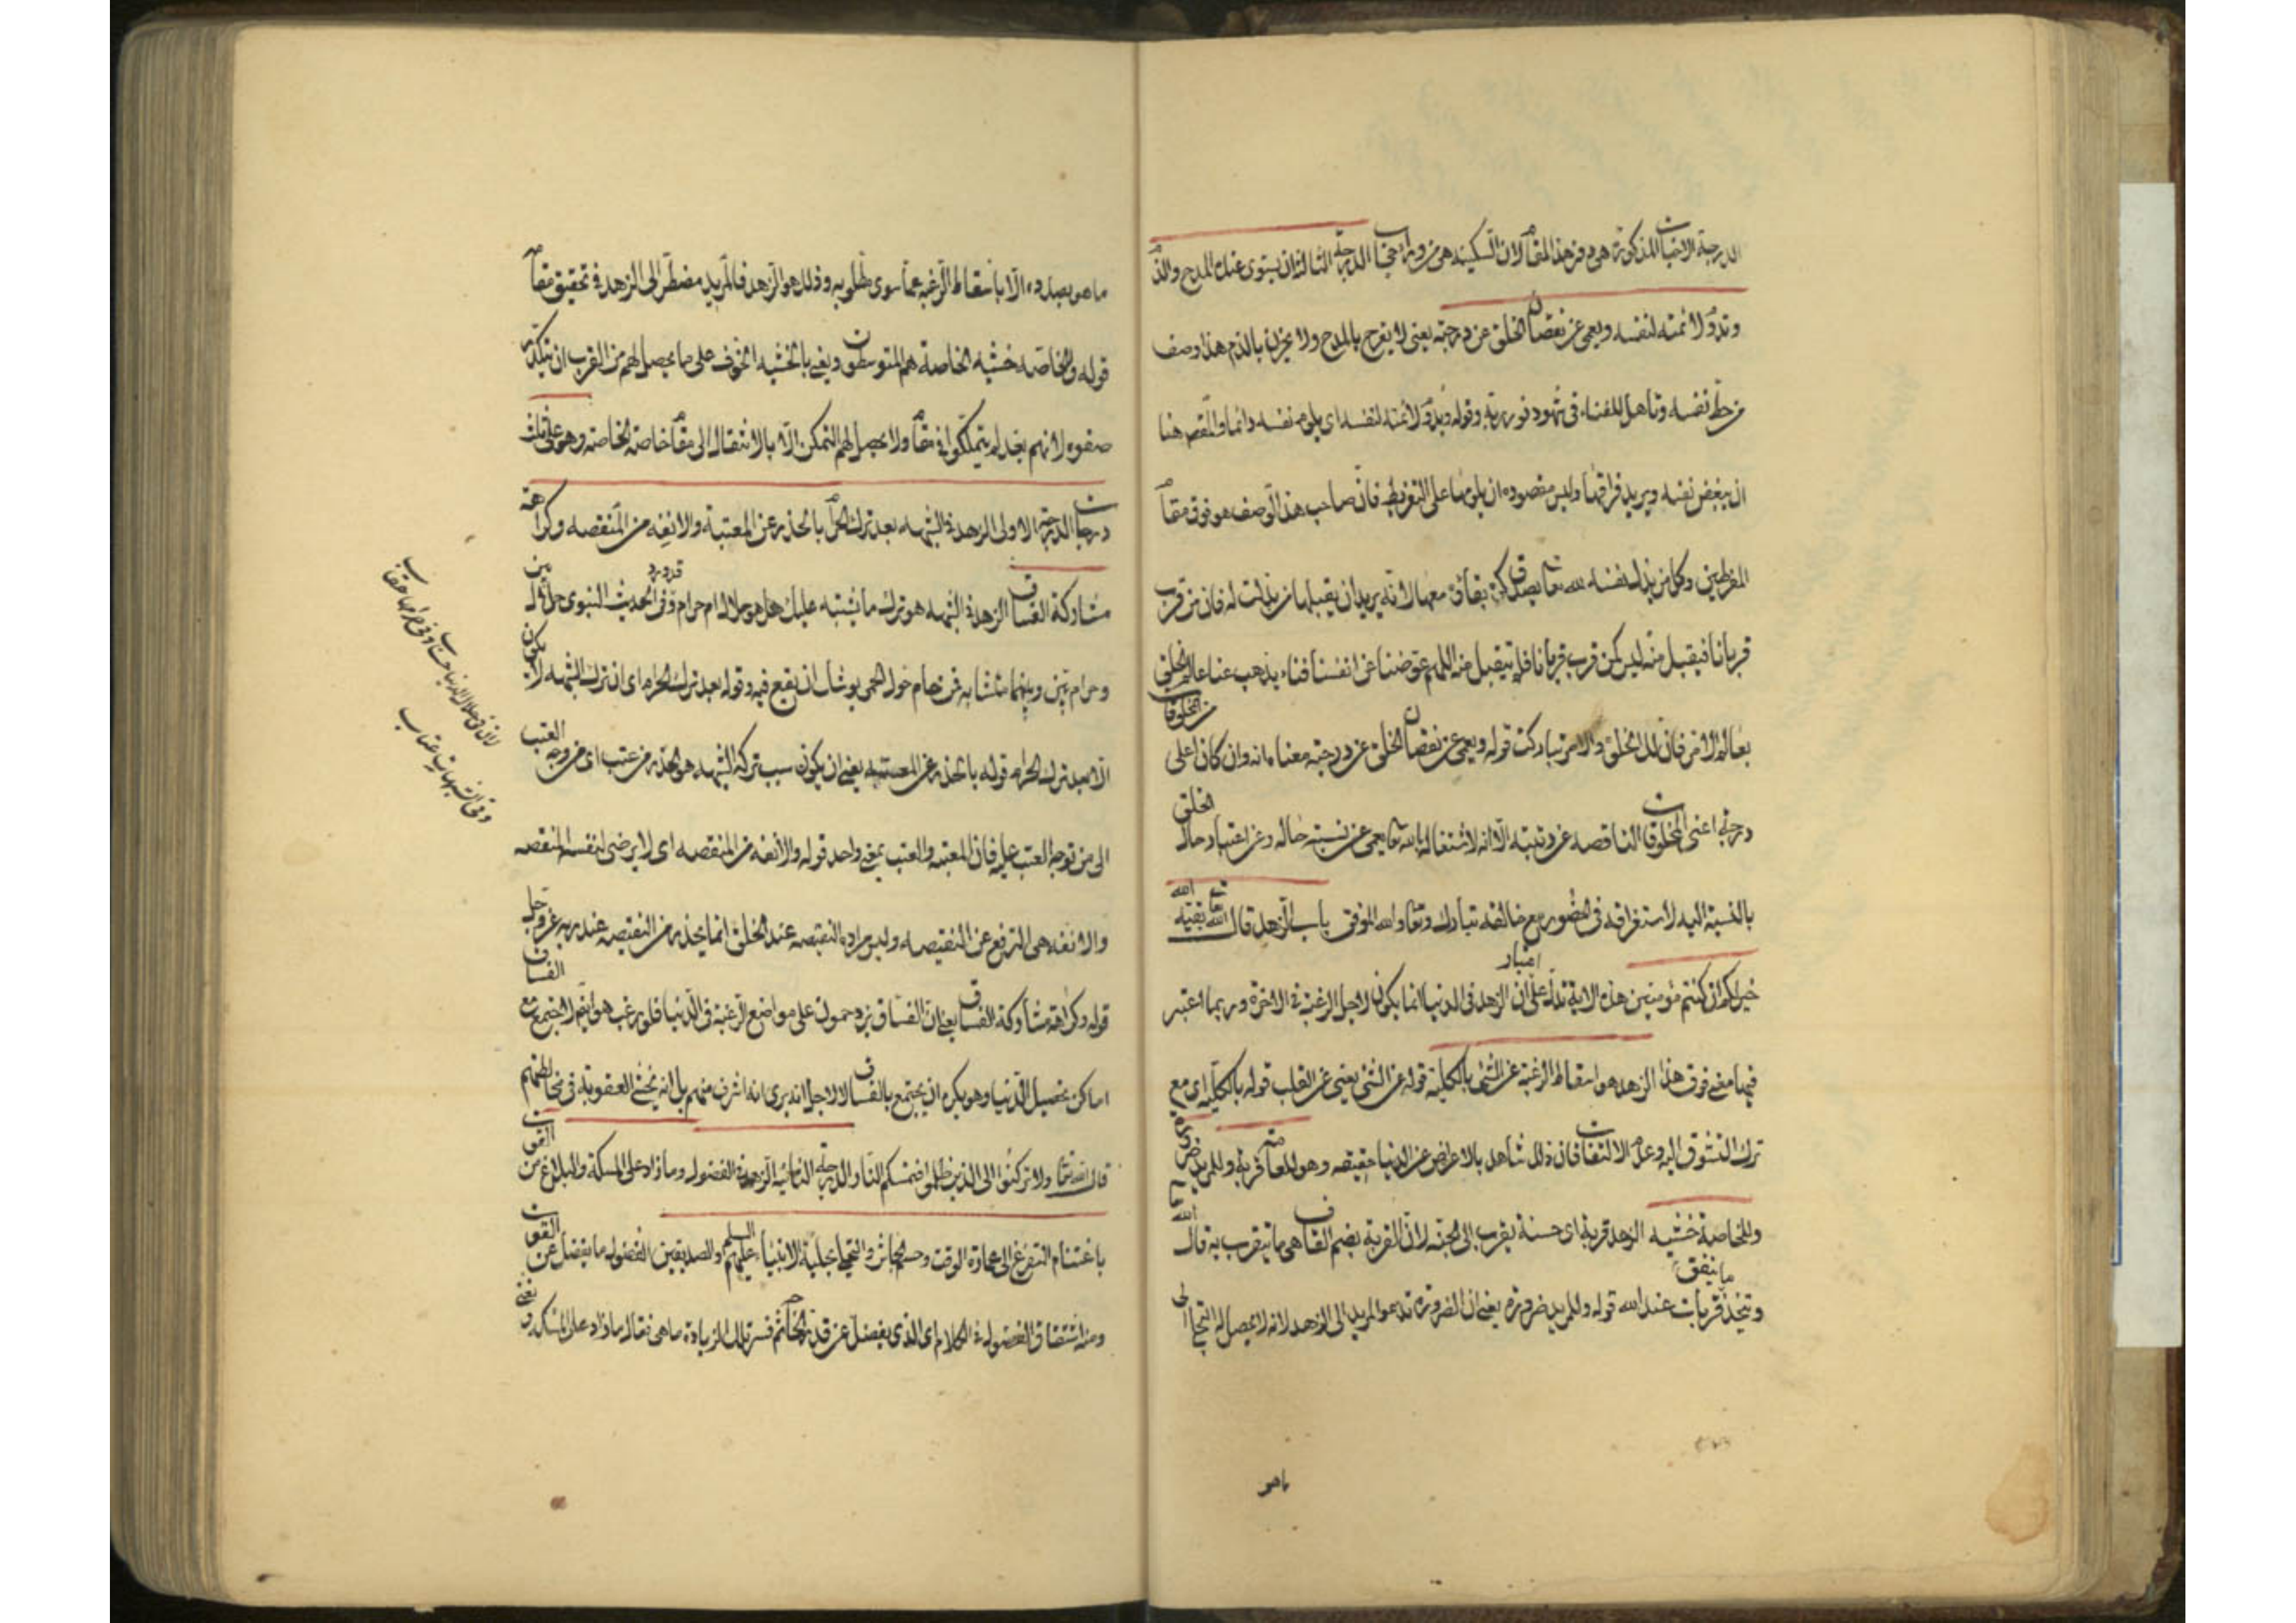 الدرجة الاخبات المذكورة هى دون هذا المقام لان السكينة هى من وراء اخبات الدرجة الثالثة ان يستوى عنده المدح والذم
وتدوم لائمته لنفسه ويعمى عن نقصان الخلق عن درجته يعنى لا يفرح بالمدح ولا يحزن بالذم هذا وصف
من حظ نفسه وتاهل للفناء فى شهود نور ربه وقوله وتدوم لائمته لنفسه اى يلوم نفسه دائما واللوم هنا
ان يبغض نفسه ويريد فراقها وليس مقصوده ان يلومها على التفريط فان صاحب هذا الوصف هو فوق مقام
المفرطين وكل من بذل نفسه لله تعالى بصدق كره بقاؤه معها لانه يريد ان يقبلها من بذلت له فان من قرب
قربانا فيقبل منه ليس كمن قرب قربانا فلم يتقبل منه اللهم عوضنا عن انفسنا فناء يذهب عنا عالم الخلق
من المخلوقات
بعالم الامر فان لك الخلق والامر تباركت قوله ويعمى عن نقصان الخلق عن درجته معناه انه وان كان اعلى
درجة اعنى المخلوقات الناقصة عن رتبته الا انه لاشتغاله بالله تعالى يعمى عن نسبة حاله وعن اعتبار حال الخلق
بالنسبة اليه لاستغراقه فى الحضور مع خالقه تبارك وتعالى والله الموفق باب الزهد قال الله تعالى بقية الله
خير لكم ان كنتم مؤمنين هذه الاية تدل على ان الزهد فى الدنيا انما يكون لاجل الرغبة فى الاخرة وربما اعتبر
فيها معنى فوق هذا الزهد هو اسقاط الرغبة عن الشئ بالكلية قوله عن الشئ يعنى عن القلب قوله بالكلية اى مع
ترك التشوق اليه وعدم الالتفات فان ذلك شاهد بالاعراض عن الدنيا حقيقة وهو للعامة قربة وللمريد ضرورة
وللخاصة خشية الزهد قربة اى حسنة يقرب الى الجنة لان القربة بضم القاف هى ما يتقرب به قال الله تعالى
ويتخذ ما ينفق قربات عند الله قوله وللمريد ضرورة يعنى ان الضرورة تدعو المريد الى الزهد لانه لا يحصل له التخلى الى
ماهو
ما هو بصدده الا باسقاط الرغبة عما سوى مطلوبه وذلك هو الزهد فالمريد مضطر الى الزهد فى تحقيق مقامه
قوله وللخاصة خشية الخاصة هم المتوسطون ويعنى بالخشية الخوف على ما يحصل لهم من القرب ان يتكدر
صفوه لانهم بعد لم يتمكنوا فى مقام ولا يحصل لهم التمكن الا بالانتقال الى مقام خاصة الخاصة وهو على ثلث
درجات الدرجة الاولى الزهد فى الشبهة بعد ترك الحرام بالحذر عن المعتبة والانفة من المنقصة وكراهة
مشاركة الفساق الزهد فى الشبهة هو ترك ما يشتبه عليك هل هو حلال ام حرام وقد ورد فى الحديث النبوى حلال بين
وحرام بين وبينهما متشابه فمن حام حول الحمى يوشك ان يقع فيه وقوله بعد ترك الحرام اى ان ترك الشبهة لا يكون
الا بعد ترك الحرام قوله بالحذر عن المعتبة يعنى ان يكون سبب تركه الشبهة هو الحذر من عتب اى من وجه العتب
الى من توجه العتب عليه فان المعتبة والعتب بمعنى واحد قوله والأنفة من المنقصة اى لا يرضى لنفسه المنقصة
والانفة هى الترفع عن النقيصة وليس مراده النقيصة عند الخلق انما يحذر من النقيصة عند ربه عز وجل
قوله وكراهة مشاركة الفساق يعنى ان الفساق يزدحمون على مواضع الرغبة فى الدنيا فلو رغب هو ايضا لاجتمع مع الفساق
اماكن تحصيل الدنيا وهو يكره ان يجتمع بالفساق لا لاجل انه يرى انه اشرف منهم بل انه يخشى العقوبة فى مخالطتهم
قال الله تعالى ولا تركنوا الى الذين ظلموا فتمسكم النار والدرجة الثانية الزهد فى الفضول وما زاد على المسكة والبلاغ من القوت
باغتنام التفرغ الى عمارة الوقت وحسم الجاش والتحلى بحلية الانبياء عليهم السلم والصديقين الفضول ما يفضل عن القوت
ومنه اشتقاق الفضول فى الكلام اى الذى يفضل عن قدر الحاجة ثم فسر تلك الزيادة ما هى فقال ما زاد على المسكة يعنى
لان فى حلال الدنيا حساب وفى حرامها عقاب
وفى الشبهات عتاب